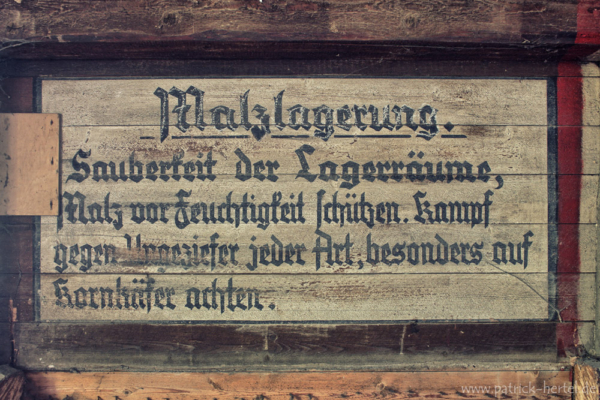 Malzlagerung.
Sauberkeit der Lagerräume,
Malz vor Feuchtigkeit schützen. Kampf
gegen Ungeziefer jeder Art, besonders auf
Kornkäfer achten.